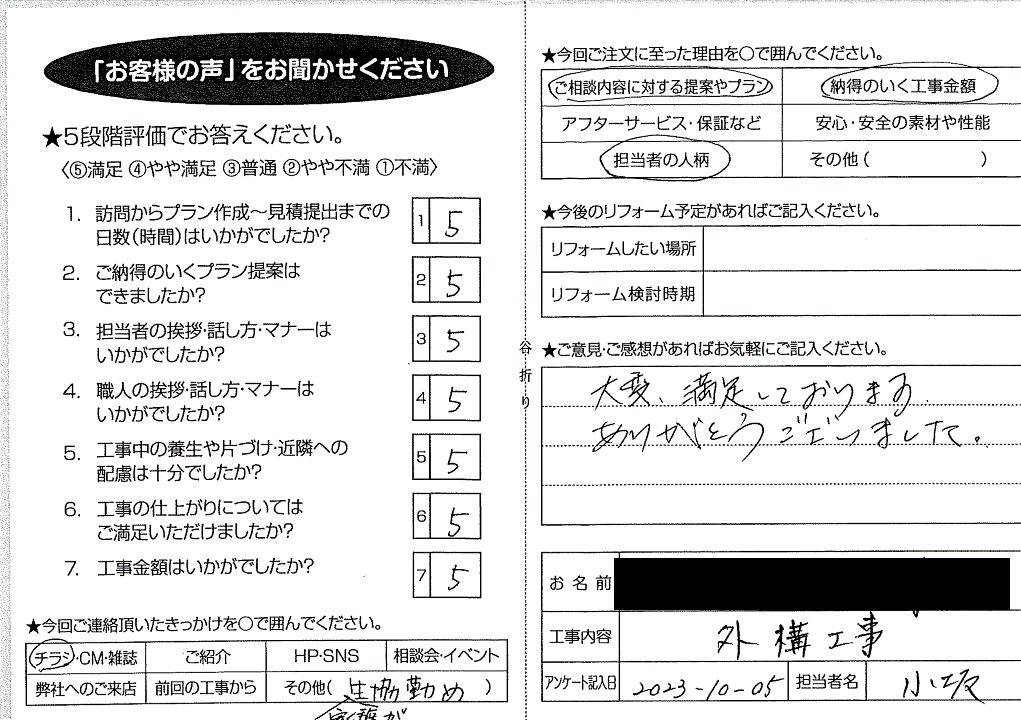 「お客様の声」をお聞かせください
★5段階評価でお答えください。
〈⑤満足 ④やや満足 ③普通 ②やや不満 ①不満〉
1. 訪問からプラン作成～見積提出までの
日数(時間)はいかがでしたか?
1 5
2. ご納得のいくプラン提案は
できましたか?
2 5
3. 担当者の挨拶・話し方・マナーは
いかがでしたか?
3 5
4. 職人の挨拶・話し方・マナーは
いかがでしたか?
4 5
5. 工事中の養生や片づけ・近隣への
配慮は十分でしたか?
5 5
6. 工事の仕上がりについては
ご満足いただけましたか?
6 5
7. 工事金額はいかがでしたか?
7 5
★今回ご連絡頂いたきっかけを○で囲んでください。
チラシ・CM・雑誌 ご紹介 HP・SNS 相談会・イベント
弊社へのご来店 前回の工事から その他( 生協勤め )
家族が
谷折り
★今回ご注文に至った理由を○で囲んでください。
ご相談内容に対する提案やプラン 納得のいく工事金額
アフターサービス・保証など 安心・安全の素材や性能
担当者の人柄 その他( )
★今後のリフォーム予定があればご記入ください。
リフォームしたい場所
リフォーム検討時期
★ご意見・ご感想があればお気軽にご記入ください。
大変、満足しております
ありがとうございました。
お名前
工事内容 外構工事
アンケート記入日 2023-10-05 担当者名 小坂